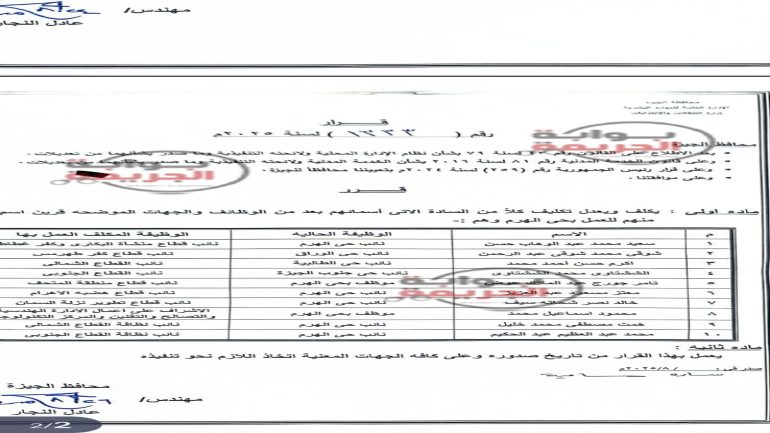 مهندس/
عادل النجار
محافظة الجيزة
قرار
رقم ( ١٦٣٣ ) لسنة ٢٠٢٥م
محافظ الجيزة
بوابة الجريمة
- بعد الاطلاع على القانون رقم ٤٣ لسنة ٧٩ بشأن نظام الإدارة المحلية ولائحته التنفيذية وما صدر بشأنهما من تعديلات.
- وعلى قانون الخدمة المدنية رقم ٨١ لسنة ٢٠١٦ بشأن الخدمة المدنية ولائحته التنفيذية وما صدر من تعديلات.
- وعلى قرار رئيس الجمهورية رقم (٢٥٩) لسنة ٢٠٢٤م بتعييننا محافظا للجيزة.
- وعلى موافقتنا.
قرر
ماده أولى : يكلف ويعدل تكليف كلا من السادة الاتى أسمائهم بعد من الوظائف والجهات الموضحه قرين اسم
منهم للعمل بحي الهرم وهم :-
م الاسم الوظيفة الحاليه الوظيفة المكلف العمل بها
١ سعيد محمد عبد الوهاب حسن نائب حى الهرم نائب قطاع منشأة البكارى وكفر غطاط
٢ شوقى محمد شوقى عبد الرحمن نائب حى الوراق نائب قطاع كفر طهرمس
٣ اكرم حسن أحمد محمد نائب حى الطالبية نائب القطاع الشمالى
٤ الششتاوى محمد الششتاوى نائب حى جنوب الجيزة نائب القطاع الجنوبى
٥ تامر جورج عبد عوض موظف بحى الهرم نائب قطاع منطقة المتحف
٦ معتز مسعود عبد العزيز نائب حى الهرم نائب قطاع هضبه الاهرام
٧ خالد نصر شحاته سيف نائب حى الهرم نائب قطاع تطوير نزلة السمان
٨ محمود اسماعيل محمد موظف بحى الهرم الاشراف على اعمال الادارة الهندسية والتصالح والتقنين والمركز التكنولوجى
٩ عصت مصطفى محمد خليل نائب حى الهرم نائب نظافة القطاع الشمالى
١٠ محمد عبد العظيم عبد الحكيم نائب حى الهرم نائب نظافة القطاع الجنوبى
بوابة الجريمة
ماده ثانيه : يعمل بهذا القرار من تاريخ صدوره وعلى كافه الجهات المعنية اتخاذ اللازم نحو تنفيذه
صدر فى : / ٨ / ٢٠٢٥م
محافظ الجيزة
مهندس/
عادل النجار
2/2